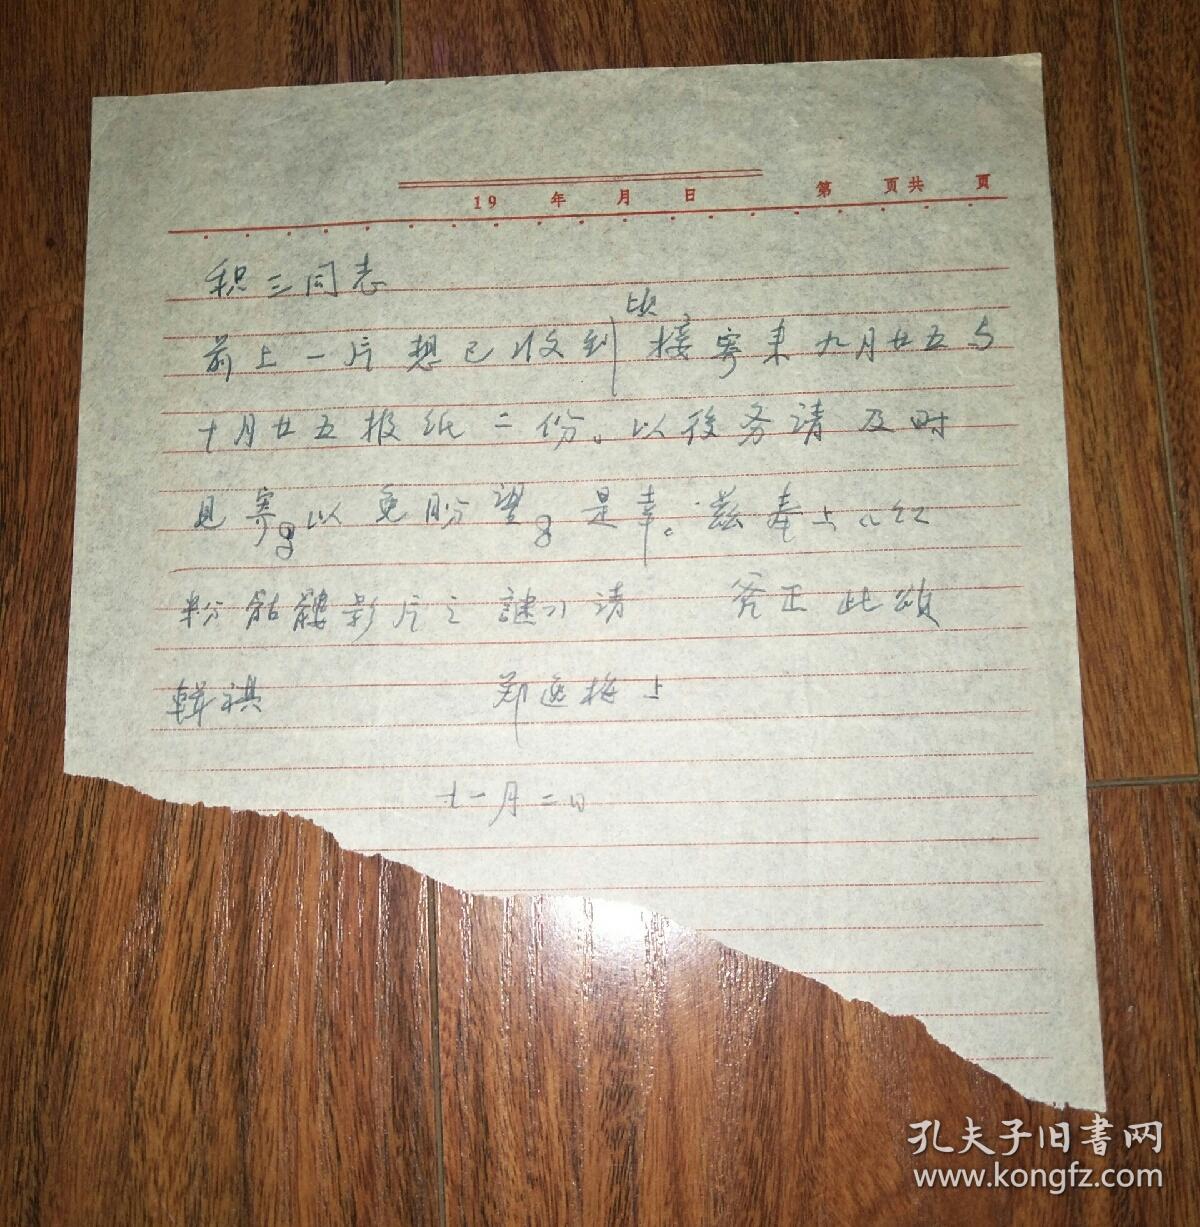 19 年 月 日 第 页共 页
积三同志
前上一片想已收到 顷接寄来九月廿五与
十月廿五报纸二份。以後务请及时
见寄，以免盼望，是幸。兹奉上《红
粉骷髅影片之谜》请 斧正 此颂
辑祺 郑逸梅上
十一月二日
孔夫子旧書网
www.kongfz.com